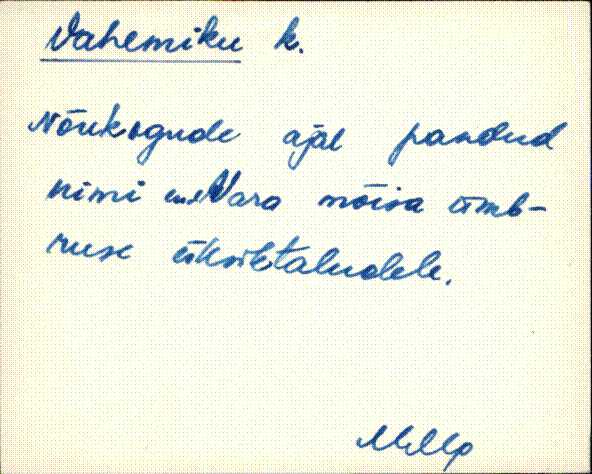 Vahemiku k.
Nõukogude ajal pandud
nimi end. Vara mõisa ümb-
ruse üksiktaludele.